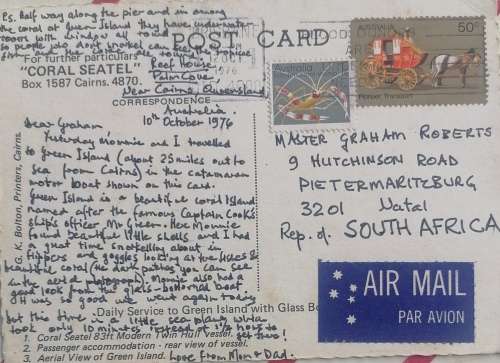 P.S. Half way along the pier and in among
the coral at Green Island they have underwater
rooms with window all round
so people who don't snorkel can see the
fish and coral
POST CARD
For further particulars
"CORAL SEATEL"
Box 1587 Cairns. 4870.
Reef House
Palm Cove
Near Cairns, Queensland
Australia.
CORRESPONDENCE
10th October 1976
Dear Graham
Yesterday Monnie and I travelled
to Green Island (about 25 miles out to
sea from Cairns) in the catamaran
motor boat shown on this card.
Green Island is a beautiful coral Island
named after the famous Captain Cook's
ship's officer Mr Green. Here Monnie
found beautiful little shells and I had
a great time snorkelling about in
flippers and goggles looking at the fishes &
beautiful coral (the dark patches you can see
in the aerial photograph). Monnie also had a
good look from the glass-bottomed boat
It was so good we went again today
Daily Service to Green Island with Glass Bo
but this time in a little sea plane which
took only 10 minutes instead of 1½ hours to
get there!
1. Coral Seatel 83ft Modern Twin Hull Vessel.
2. Passenger accommodation - rear view of vessel.
3. Aerial View of Green Island.
Love from Mon & Dad.
G. K. Bolton, Printers, Cairns.
OCT
1976
Australia
AUSTRALIA
50c
Pioneer Transport
MASTER GRAHAM ROBERTS
9 HUTCHINSON ROAD
PIETERMARITZBURG
3201 Natal
Rep. of SOUTH AFRICA
AIR MAIL
PAR AVION